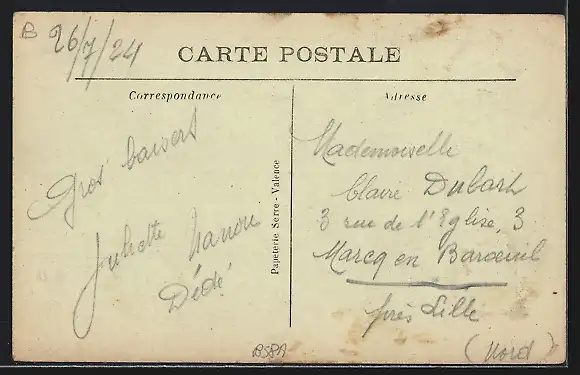 B 26/7/24
CARTE POSTALE
Correspondance
Adresse
Gros baisers
Juliette Nanou
Dédé
Papeterie Serre - Valence
Mademoiselle
Claire Dubach
3 rue de l'Eglise, 3
Marcq en Baroeuil
près Lille
(Nord)